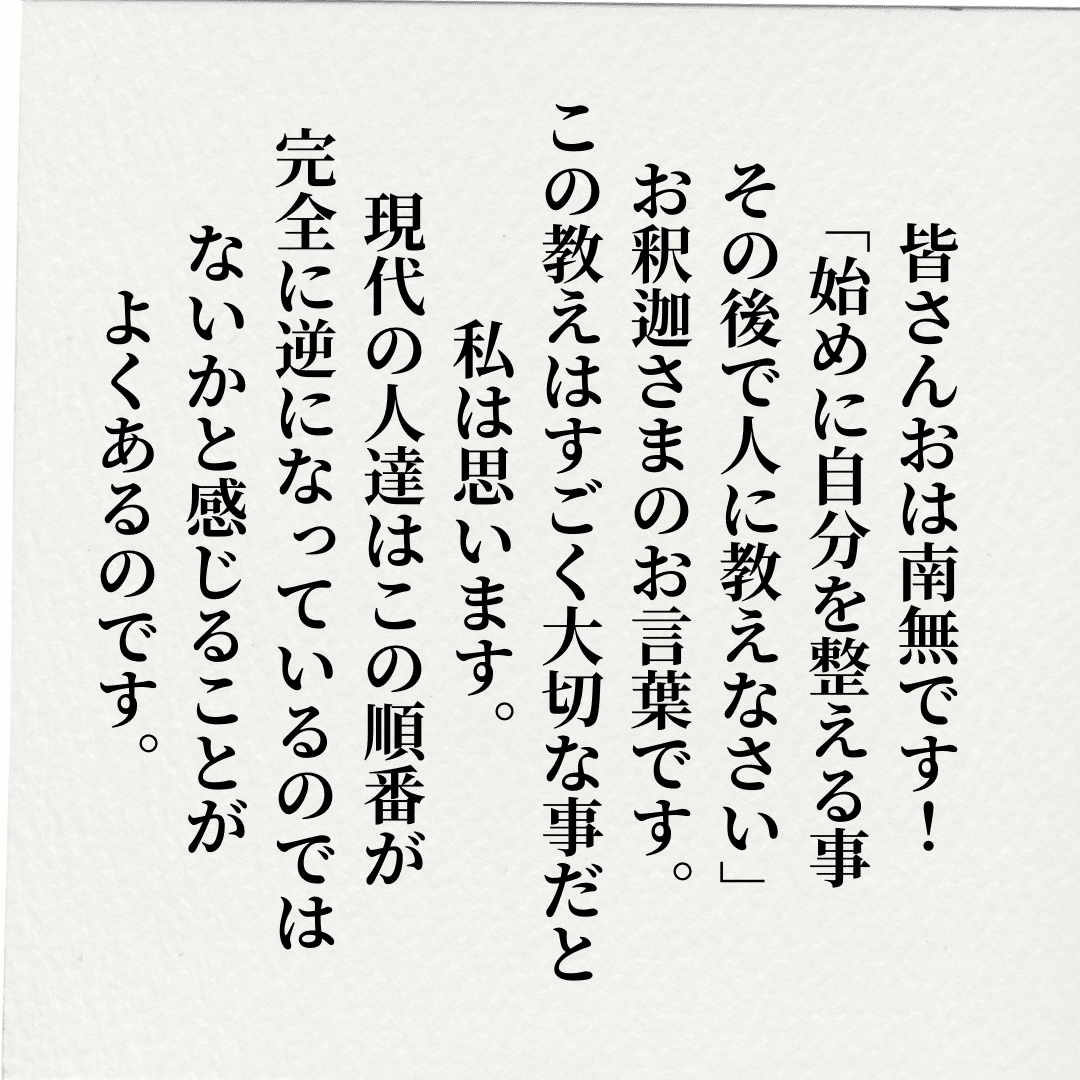 皆さんおは南無です！
「始めに自分を整える事
その後で人に教えなさい」
お釈迦さまのお言葉です。
この教えはすごく大切な事だと
私は思います。
現代の人達はこの順番が
完全に逆になっているのでは
ないかと感じることが
よくあるのです。